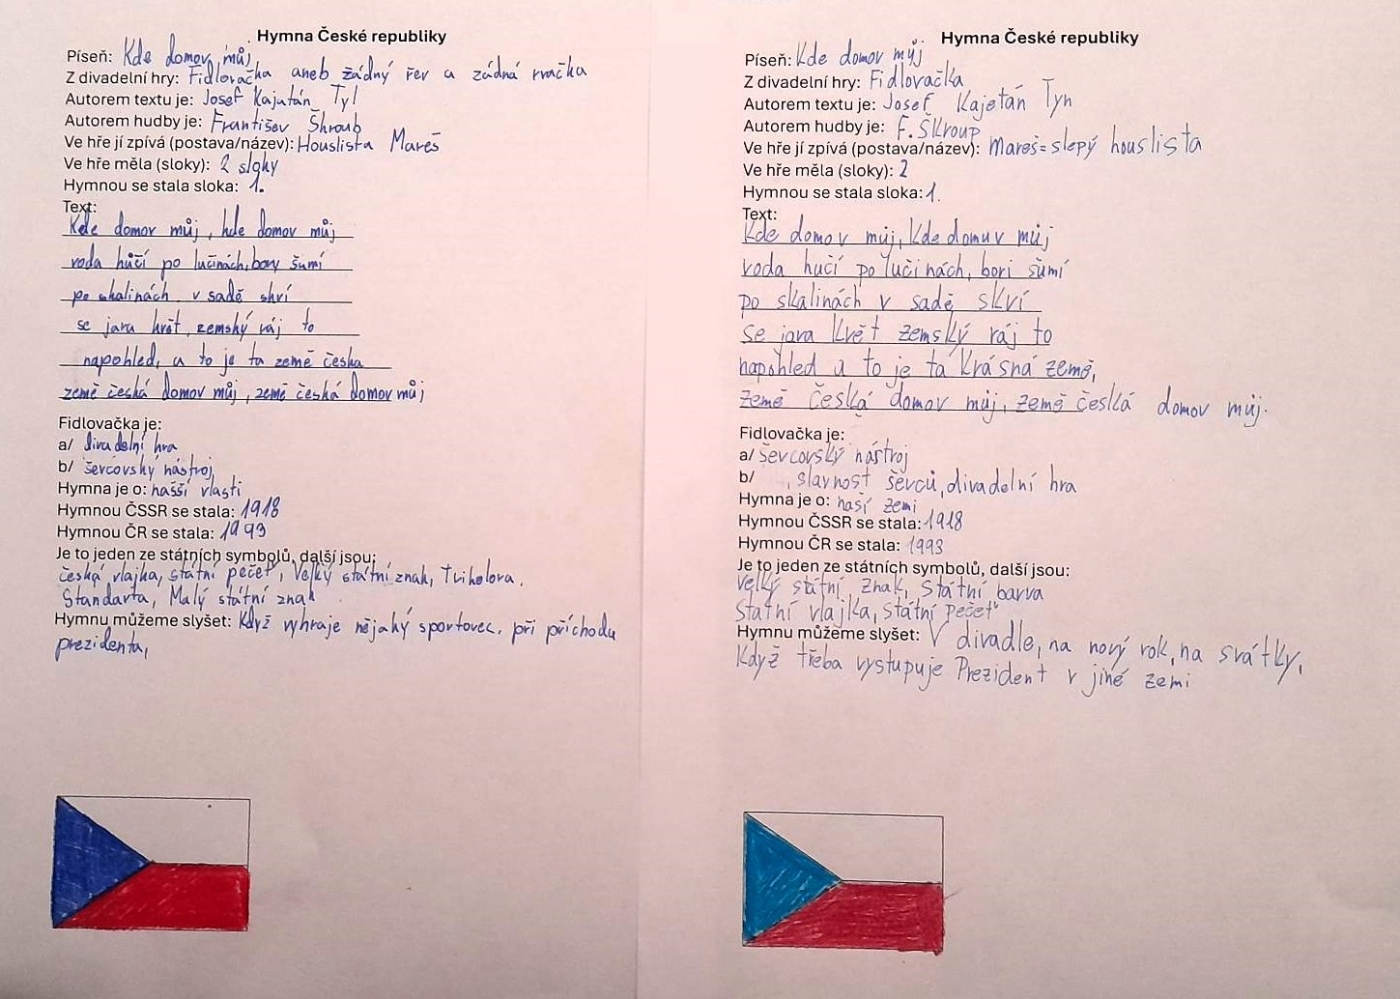 Hymna České republiky
Píseň: Kde domov můj
Z divadelní hry: Fidlovačka aneb žádný řev a zádná rvačka
Autorem textu je: Josef Kajatán Tyl
Autorem hudby je: Františev Škroub
Ve hře jí zpívá (postava/název): Houslista Mareš
Ve hře měla (sloky): 2 sloky
Hymnou se stala sloka: 1.
Text:
Kde domov můj, kde domov můj
voda hučí po lučinách, bory šumí
po skalinách v sadě skví
se jara květ, zemský ráj to
napohled, a to je ta země česka
země česká domov můj, země česká domov můj
Fidlovačka je:
a/ divadelní hra
b/ ševcovský nástroj
Hymna je o: našší vlasti
Hymnou ČSSR se stala: 1918
Hymnou ČR se stala: 1993
Je to jeden ze státních symbolů, další jsou:
česká vlajka, státní pečeť, Velký státní znak, Trikolora.
Standarta, Malý státní znak
Hymnu můžeme slyšet: Když vyhraje nějaký sportovec. při příchodu
prezidenta,
Hymna České republiky
Píseň: Kde domov můj
Z divadelní hry: Fidlovačka
Autorem textu je: Josef Kajetán Tyn
Autorem hudby je: F. ŠKroup
Ve hře jí zpívá (postava/název): Mareš=slepý houslista
Ve hře měla (sloky): 2
Hymnou se stala sloka: 1.
Text:
Kde domov můj, Kde domuv můj
voda hučí po lučinách, bori šumí
po skalinách v sadě skví
se jara květ zemský ráj to
napohled a to je ta krásná země,
země česká domov můj, země česká domov můj.
Fidlovačka je:
a/ševcovský nástroj
b/ , slavnost ševců, divadelní hra
Hymna je o: naší zemi
Hymnou ČSSR se stala: 1918
Hymnou ČR se stala: 1993
Je to jeden ze státních symbolů, další jsou:
Velký státní znak, Státní barva
Státní vlajka, státní pečeť
Hymnu můžeme slyšet: V divadle, na nový rok, na svátky,
Když třeba vystupuje Prezident v jiné zemi